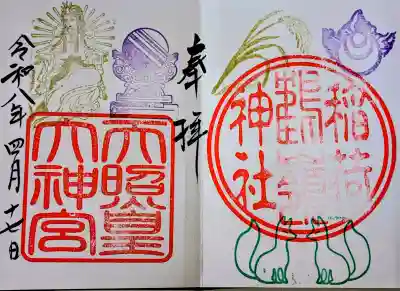 奉拝
天照皇
大神宮
令和八年四月十七日
稲荷
神社